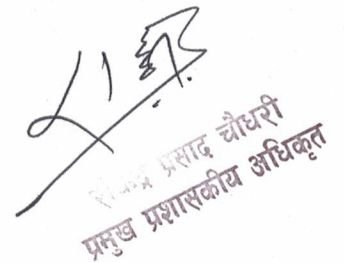 प्रसाद चौधरी
प्रमुख प्रशासकीय अधिकृत